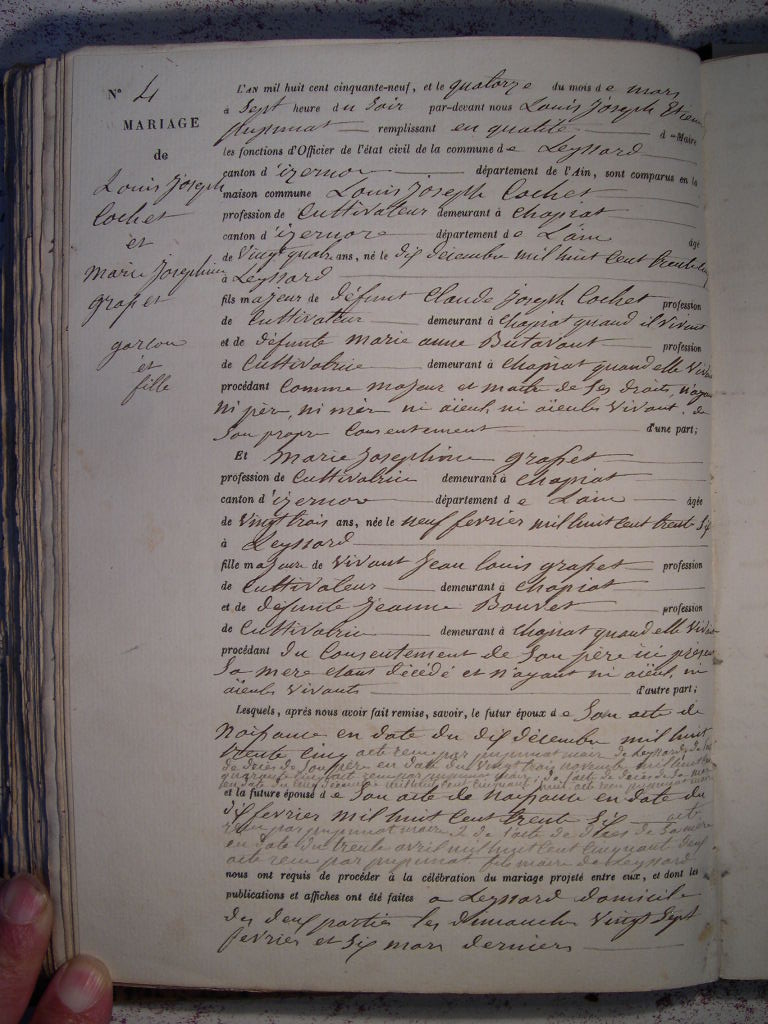 N° 4
MARIAGE
de
Louis joseph
Cochet
et
marie josephine
grapet
garcon
et
fille
L'AN mil huit cent cinquante-neuf, et le quatorze du mois de mars
à Sept heure du Soir par-devant nous Louis joseph Etienne
pupunat remplissant en qualité d -Maire
les fonctions d'Officier de l'état civil de la commune de Leyssard
canton d'izernor département de l'Ain, sont comparus en la
maison commune Louis joseph Cochet
profession de Cultivateur demeurant à Chapiat
canton d'izernore département de L'ain âgé
de Vingt quatre ans, né le dix décembre mil huit Cent trente
à Leyssard
fils majeur de défunt Claude joseph Cochet profession
de Cultivateur demeurant à Chapiat quand il Vivait
et de défunte marie anne Butavant profession
de Cultivatrice demeurant à Chapiat quand elle Viv
procédant Comme majeur et maitre de Ses droits, n'aya
ni pèr, ni mèr ni aïeul, ni aïeules Vivant, de
Son propre Consentement d'une part;
Et Marie josephine grapet
profession de Cultivatrice demeurant à Chapiat
canton d'izernor département de L'ain âgée
de Vingt trois ans, née le neuf fevrier mil huit Cent trente Six
à Leyssard
fille majeure de Vivant jean Louis grapet profession
de Cultivateur demeurant à Chapiat
et de défunte jeanne Bouvet profession
de Cultivatrice demeurant à Chapiat quand elle Vivait
procédant du Consentement de Son père ici présent
Sa mere etant décédé et n'ayant ni aïeul, ni
aïeules Vivants d'autre part;
Lesquels, après nous avoir fait remise, savoir, le futur époux de Son acte de
Naissance en date du dix décembre mil huit
trente Cinq acte reçu par pupunat maire de Leyssard
de décès de Son père en date du Vingt trois novembre mil huit
reçu par pupunat maire, de l'acte de décès de Sa mere
en date du
et la future épouse de Son acte de Naissance en date du
dix fevrier mil huit Cent trente Six acte
reçu par pupunat maire 2 de l'acte de décès de Sa mère
en date du trente avril mil huit Cent Cinquante deux
acte reçu par pupunat fils maire de Leyssard
nous ont requis de procéder à la célébration du mariage projeté entre eux, et dont les
publications et affiches ont été faites a Leyssard domicile
des deux parties les dimanches Vingt Sept
fevrier et Six mars derniers